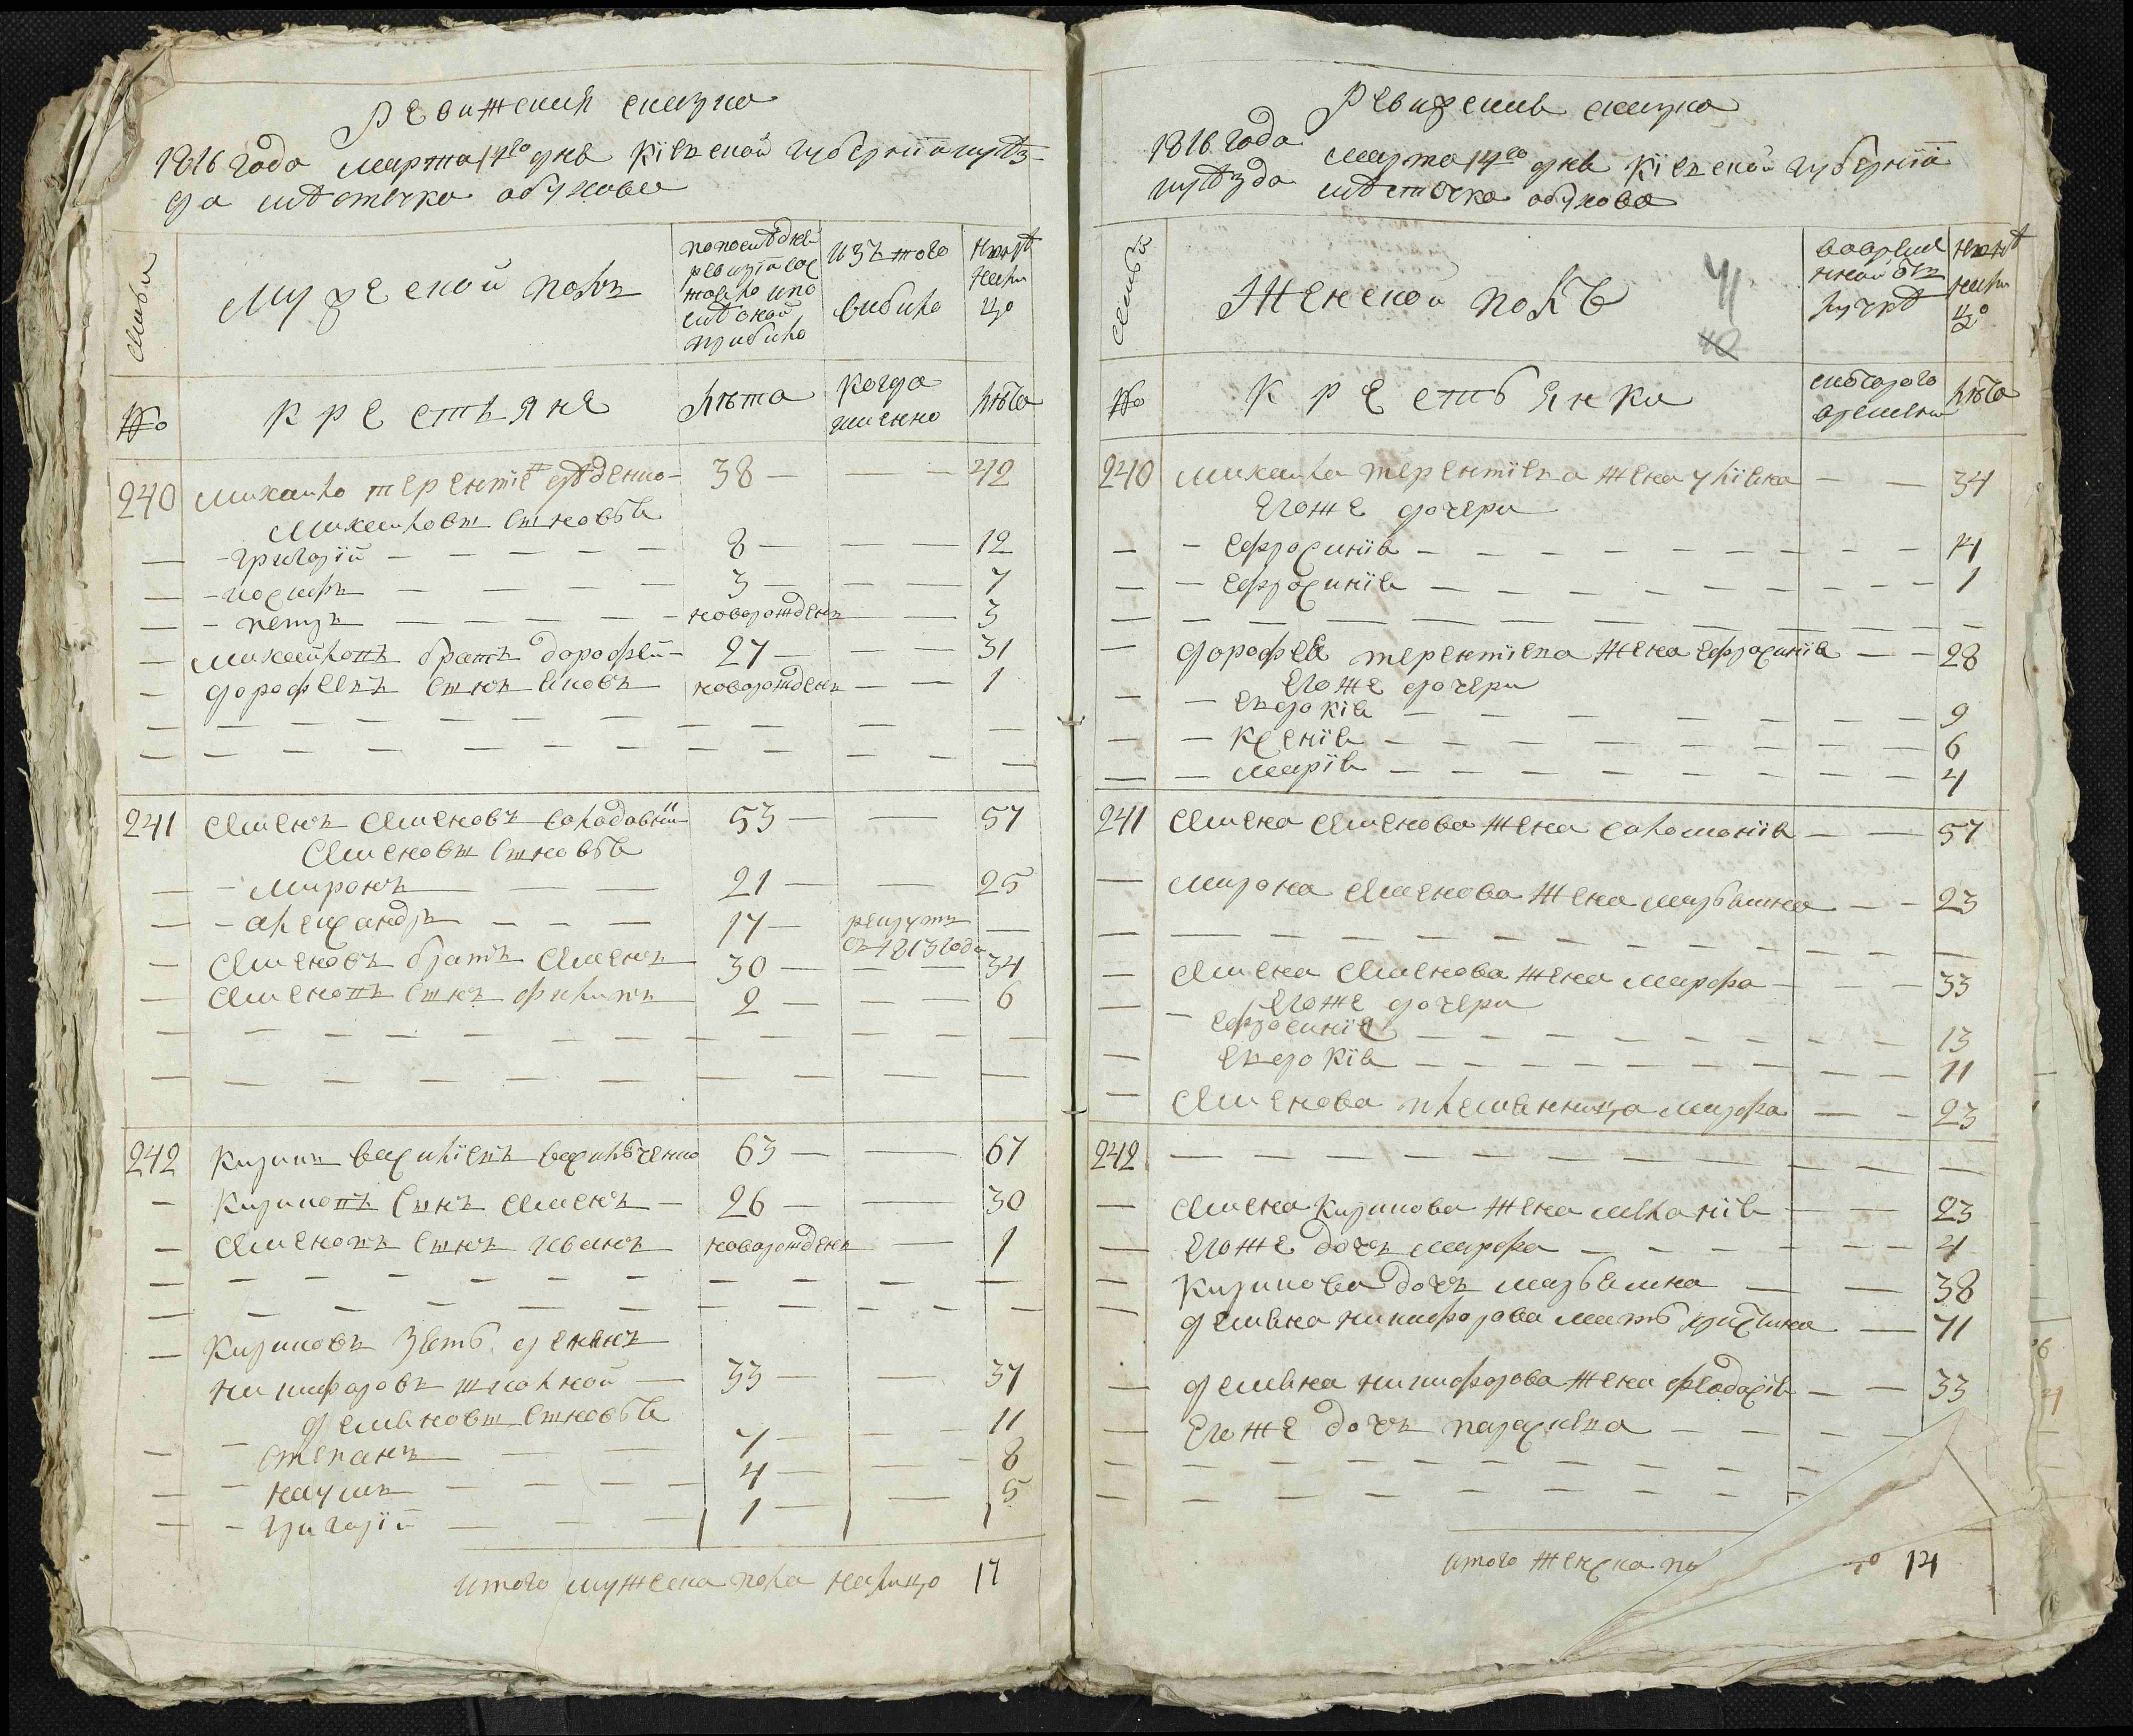 Ревижския сказка
1816 года марта 14го дня Кіевской губерніи и уѣз-
да мѣстечка обухова
Семьи
Мужеской полъ
по последней ревизіи состояло и после оной прибыло
изъ того выбыло
ныне на лицо
№
Крестьяне
Лѣта
когда именно
лѣта
240 михайло терентіе дѣденко — 38 — — — 42
Михайловы сыновья
— - григорій — — — 8 — — — 12
— - иосифъ — — — 3 — — — 7
— - петръ — — — новорожденъ — — 3
— михайловъ братъ дорофей — 27 — — — 31
— дорофеевъ сынъ яковъ — новорожденъ — — 1
241 Семенъ Семеновъ солодовній 53 — — 57
Семеновы сыновья
— - миронъ — — — 21 — — 25
— - александръ — — — 17 — рекрутъ съ 1813 года —
— Семеновъ братъ Семенъ 30 — — — 34
— Семеновъ сынъ филипъ 2 — — — 6
242 Кирикъ василіевъ василченко 63 — — 67
— Кириковъ сынъ Семенъ — 26 — — 30
— Семеновъ сынъ иванъ новорожденъ — 1
— Кириковъ зять демянъ
никифоровъ школной — 33 — — 37
демяновы сыновья
— степанъ — — 7 — — — 11
— наумъ — — — 4 — — — 8
— - григорій — — — 1 — — 5
итого мужеска пола налицо 17
Ревижския сказка
1816 года марта 14го дня Кіевской губерніи
и уѣзда мѣстечка обухова
Семья
Женской полъ
41
40
во временной отлучкѣ
ныне на лицо
№
Крестьянки
с которого времени
лѣта
240 михайла терентіева жена уліяна — — 34
Его же дочери
— - ефросинія — — — 14
— - ефросинія — — — 1
— дорофея терентіева жена ефросинія — — 28
Его же дочери
— - евдокія — — — 9
— - Ксенія — — — 6
— - марія — — — 4
241 Семена Семенова жена соломонія — — 57
— мирона Семенова жена марьяна — — 23
— Семена Семенова жена марфа — — — 33
Его же дочери
— ефросинія — — — 13
— евдокія — — — 11
— Семенова племянница марфа — — 23
242 — — —
— Семена Кирикова жена меланія — — 23
— Его же дочь марфа — — — 4
— Кирикова дочь марьяна — — 38
— демяна никифорова мать христина — 71
— демяна никифорова жена феодосія — — 33
— Его же дочь параскева — — —
итого женска по
о 14